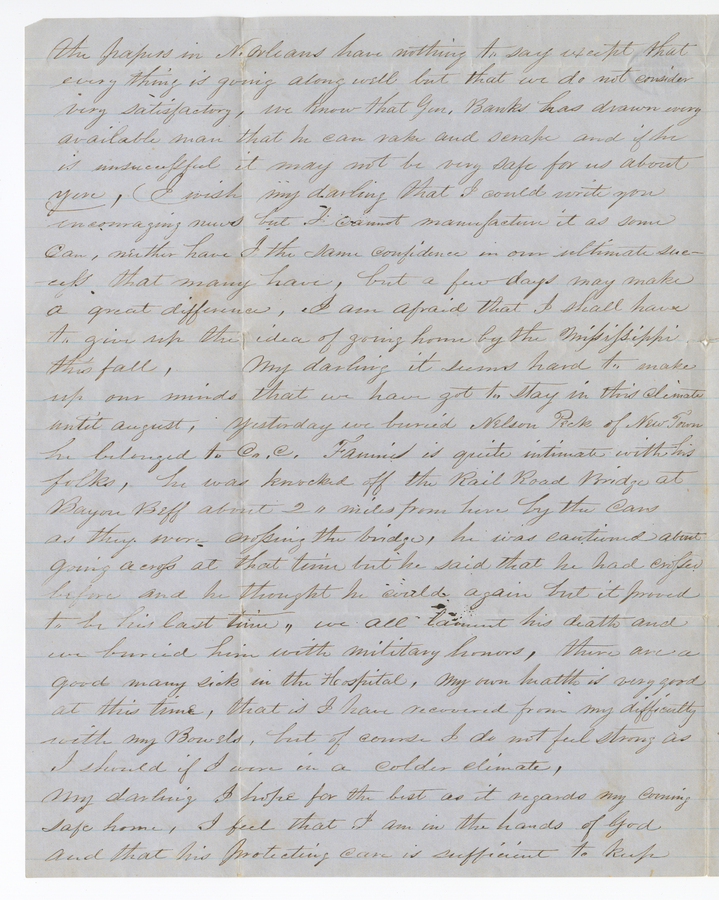 the papers in N. Orleans have nothing to say except that
every thing is going along well but that we do not consider
very satisfactory, we know that Gen. Banks has drawn every
available man that he can rake and scrape and if he
is unsuccessful it may not be very safe for us about
here, I wish my darling that I could write you
encouraging news but I cannot manufacture it as some
can, neither have I the same confidence in our ultimate suc-
cess that many have, but a few days may make
a great difference, I am afraid that I shall have
to give up the idea of going home by the Mississippi
this fall, My darling it seems hard to make
up our minds that we have got to stay in this climate
until august, yesterday we buried Nelson Peck of New Town
he belonged to Co. C. is quite intimate with his
folks, he was knocked off the Rail Road Bridge at
Bayou Beff about 20 miles from here by the Cars
as they were crossing the bridge, he was cautioned about
going across at that time but he said that he had crossed
before and he thought he could again but it proved
to be his last time, we all lament his death and
we buried him with military honors, there are a
good many sick in the Hospital, My own health is very good
at this time, that is I have recovered from my difficulty
with my Bowels, but of course I do not feel strong as
I should if I were in a colder climate,
My darling I hope for the best as it regards my coming
safe home, I feel that I am in the hands of God
and that his protecting care is sufficient to keep